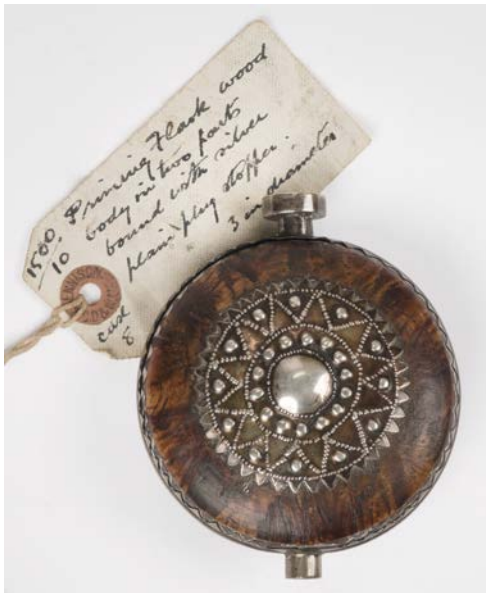 1500
10
Priming Flask wood
body in two parts
bound with silver
plain plug stopper.
3 in diameter
case
8